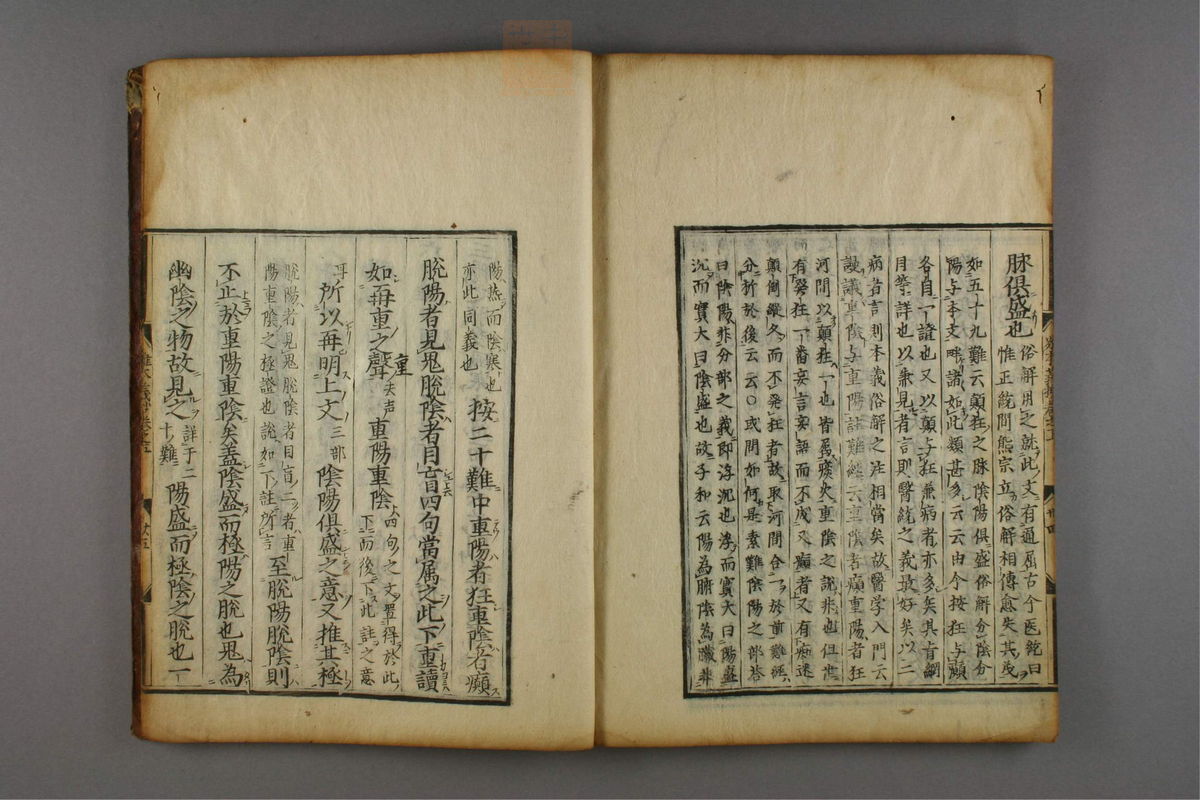 脉俱盛也 俗解用之就此文有通屈古今医統曰
惟正統間熊宗立俗解相傳愈失其
如五十九難云顛狂之脉陰陽俱盛俗解分陰分
陽与本文畔識如此類甚多云云由今按狂与顛
各自一證也又以顛与狂兼病者亦多矣其盲
目等詳也以兼見者言則醫統之義最好矣以二
病者言則本義俗解之注相當矣故醫学入門云
謾議重陰与重陽註難經云重陰者癲重陽者狂
河間以顛狂一也皆為痰火重陰之說非也但世
有發狂一番妄言妄語而不成又癲者又有痴迷
顛倒縱久而不発狂者故取河間合一於前難經
分析於後云云〇或問如何是素難陰陽之部荅
曰陰陽非分部之義即浮沉也浮而實大曰陽盛
沉而實大曰陰盛也故子和云陽為腑陰為臟非
陽熱而陰寒也
亦此同義也
按二十難中重陽者狂重陰者癲
脫陽者見鬼脫陰者目盲四句當属之此下重讀
如再重之聲 重去声 重陽重陰 四句之文置得於此
下而後下此註之意
耳所以再明上文三部陰陽俱盛之意又推其極
脫陽者見鬼脫陰者目盲二者重
陽重陰之極證也說如下註所言
至脫陽脫陰則
不止於重陽重陰矣盖陰盛而極陽之脫也鬼為
幽陰之物故見之 詳于二
十難 陽盛而極陰之脫也一